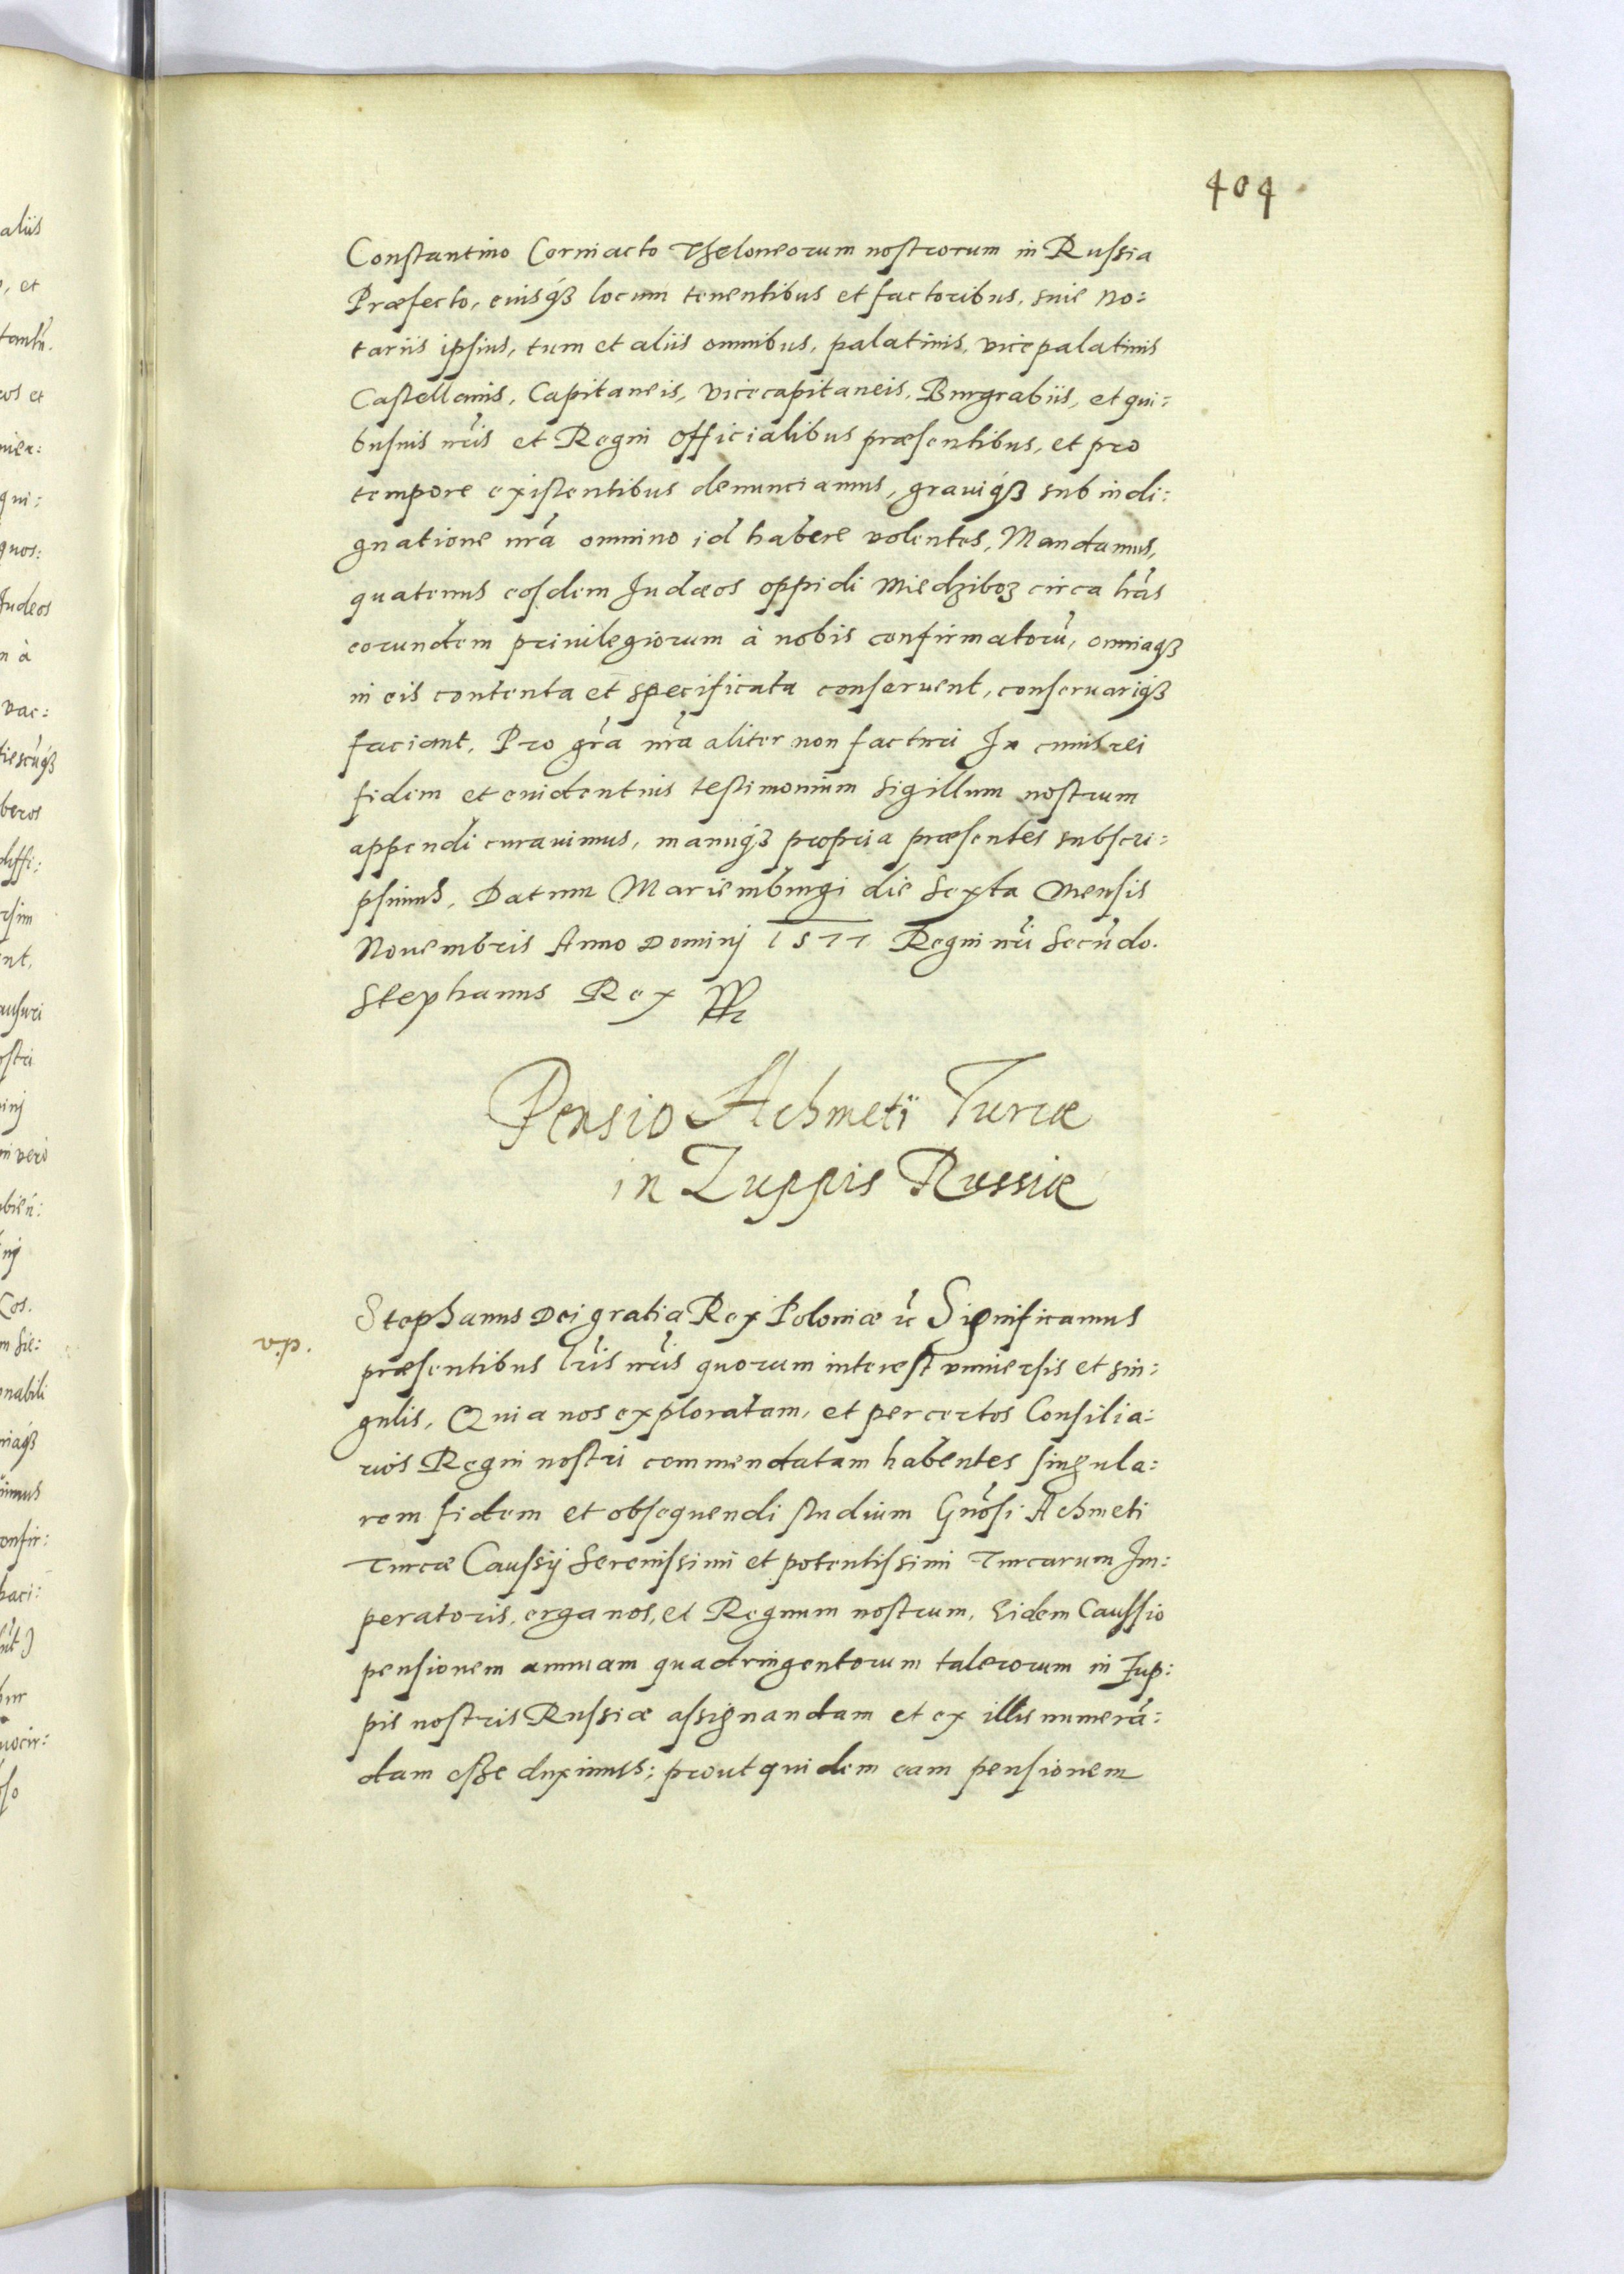 404
Constantino Corniacto Theloneorum nostrorum in Russia
Præfecto, eiusq́ꝫ locum tenentibus et factoribus, siue no:
tariis ipsius, tum et aliis omnibus, palatinis, vicepalatinis
Castellanis, Capitaneis, vicecapitaneis, Burgrabiis, et qui:
busuis nr̃is et Regni officialibus præsentibus, et pro
tempore existentibus denunciamus, grauiq́ꝫ sub indi:
gnatione nr̃a omnino id habere volentes, Mandamus,
quatenus eosdem Iudæos oppidi Miedziboz circa hãs
eorundem priuilegiorum à nobis confirmatorũ, omniaqꝫ
in eis contenta et specificata conseruent, conseruariq́ꝫ
faciant, Pro gr̃a nr̃a aliter non facturi In cuius rei
fidem et euidentius testimonium sigillum nostrum
appendi curauimus, manuq́ꝫ propria præsentes subscri:
psimus, Datum Mariemburgi die sexta mensis
Nouembris Anno Dominj 1577 Regni nr̃i Secũdo.
Stephanus Rex
Pensio Achmeti Turcæ
in Zuppis Russiæ
Stephanus Dei gratia Rex Poloniæ ꝛc̃ Significamus
v.p.
præsentibus lr̃is nr̃is quorum interest vniuersis et sin:
gulis, Quia nos exploratam, et per certos Consilia:
rios Regni nostri commendatam habentes singula:
rem fidem et obsequendi studium Gnõsi Achmeti
Turcæ Caussij Serenissimi et potentissimi Turcarum Im:
peratoris, erga nos, et Regnum nostrum, Eidem Caussio
pensionem annuam quadringentorum talerorum in Zup:
pis nostris Russiæ assignandam et ex illis numerã:
dam esse duximus; prout quidem eam pensionem